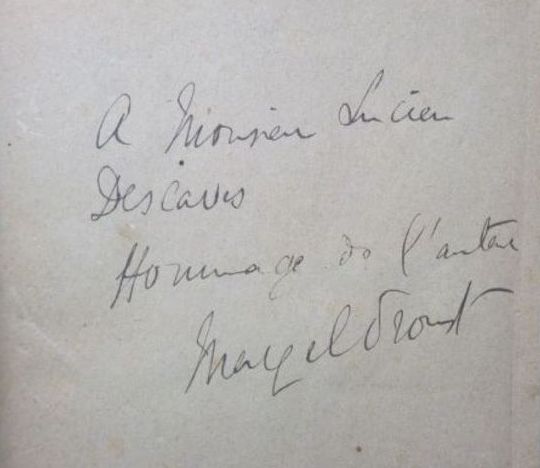 A Monsieur Lucien
Descaves
Hommage de l'auteur
Marcel Proust